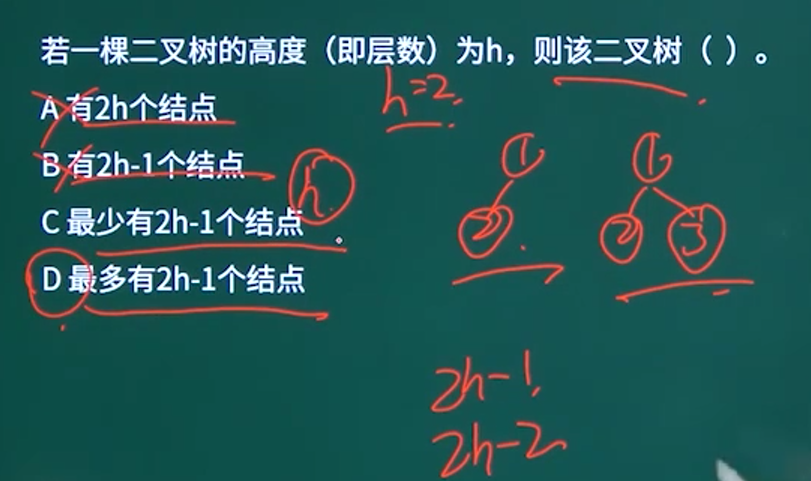 若一棵二叉树的高度（即层数）为h，则该二叉树（ ）。
h=2.
A 有2h个结点
B 有2h-1个结点
h
C 最少有2h-1个结点
D 最多有2h-1个结点
1 1
2 2 3
2h-1
2h-2